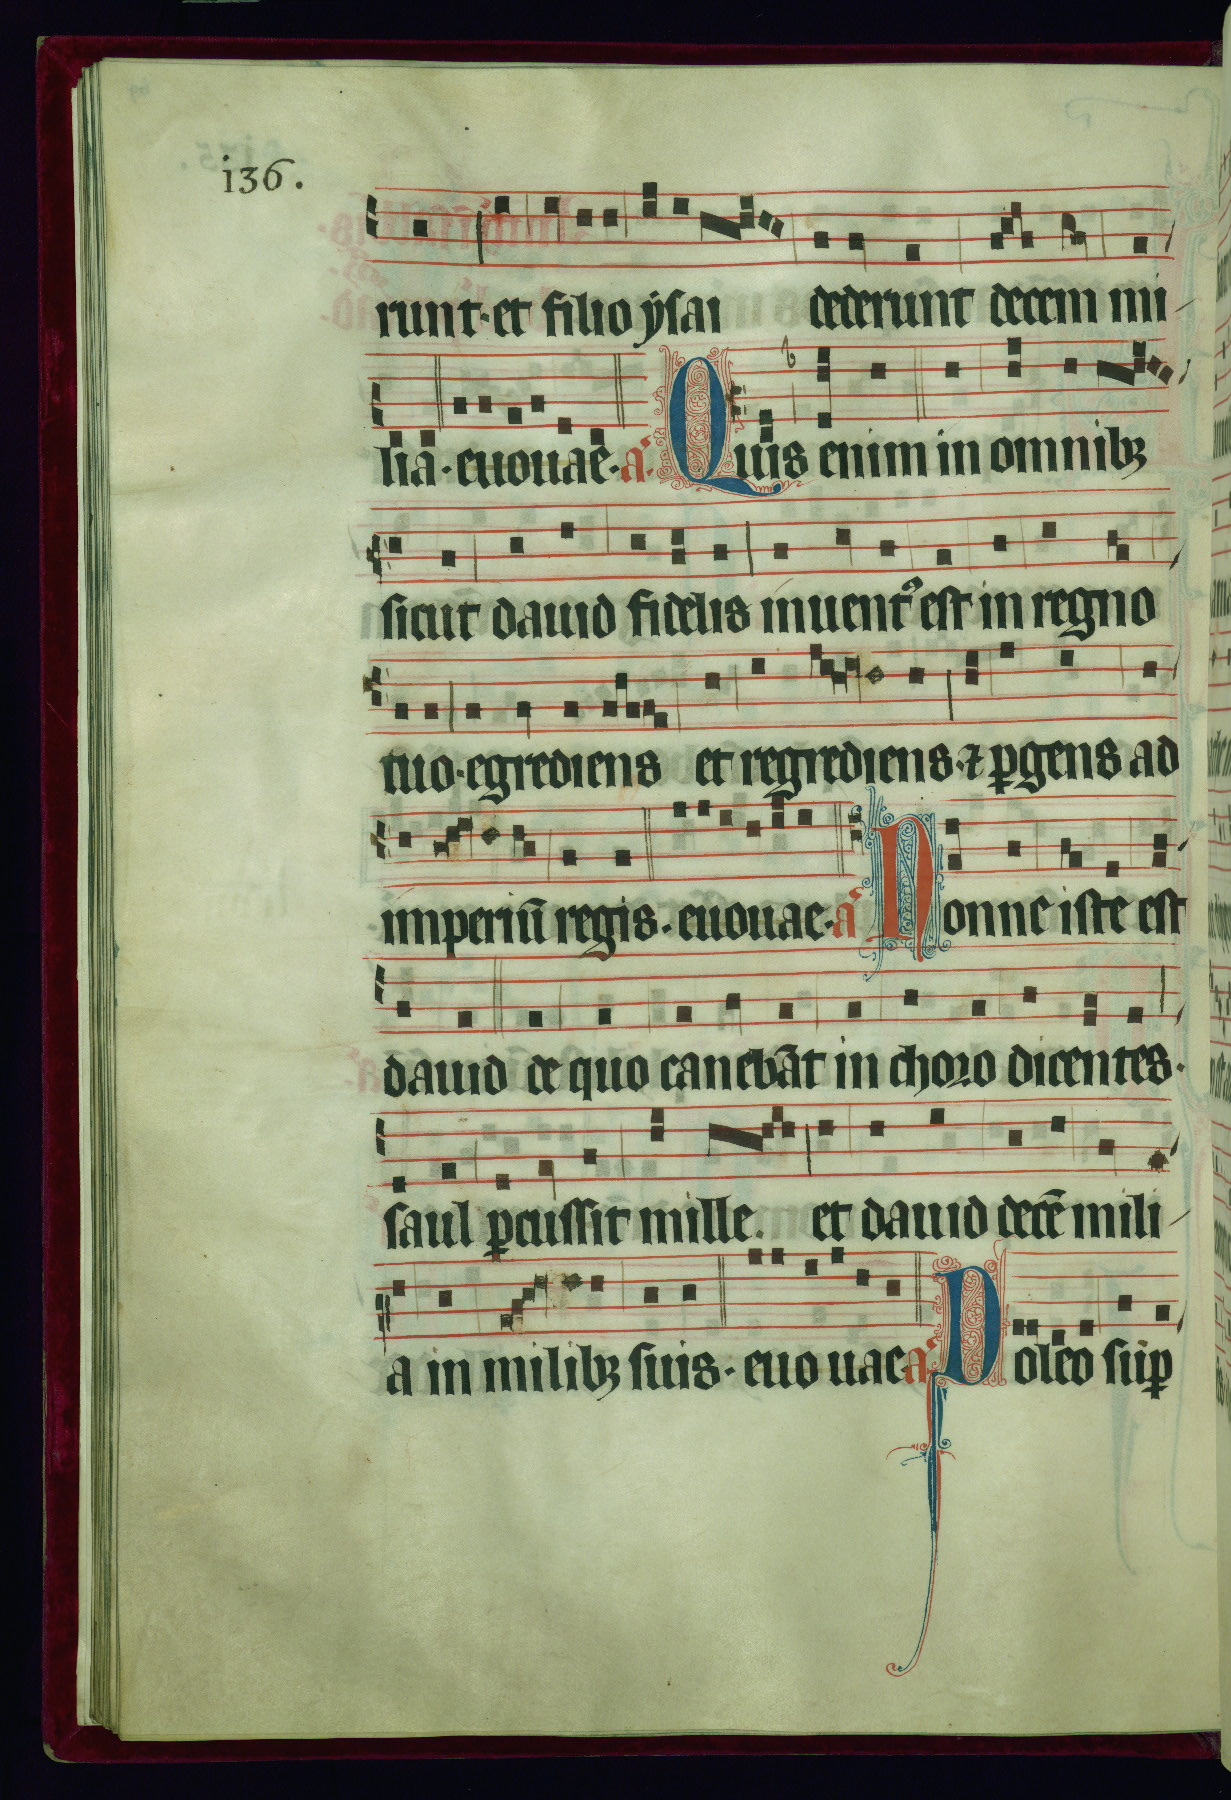 i36.
runt·et filio ẏsai dederunt decem mi
lia·euouae·a͛. Quis enim in omnibꝫ
sicut dauid fidelis inuentꝰ est in regno
tuo·egrediens et regrediens·⁊ ꝑgens ad
imperiū regis·euouae·a͛ Nonne iste est
dauid de quo canebāt in choro dicentes·
saul ꝑcussit mille. et dauid decē mili
a in milibꝫ suis·euo uae a͛. Doleo sūp